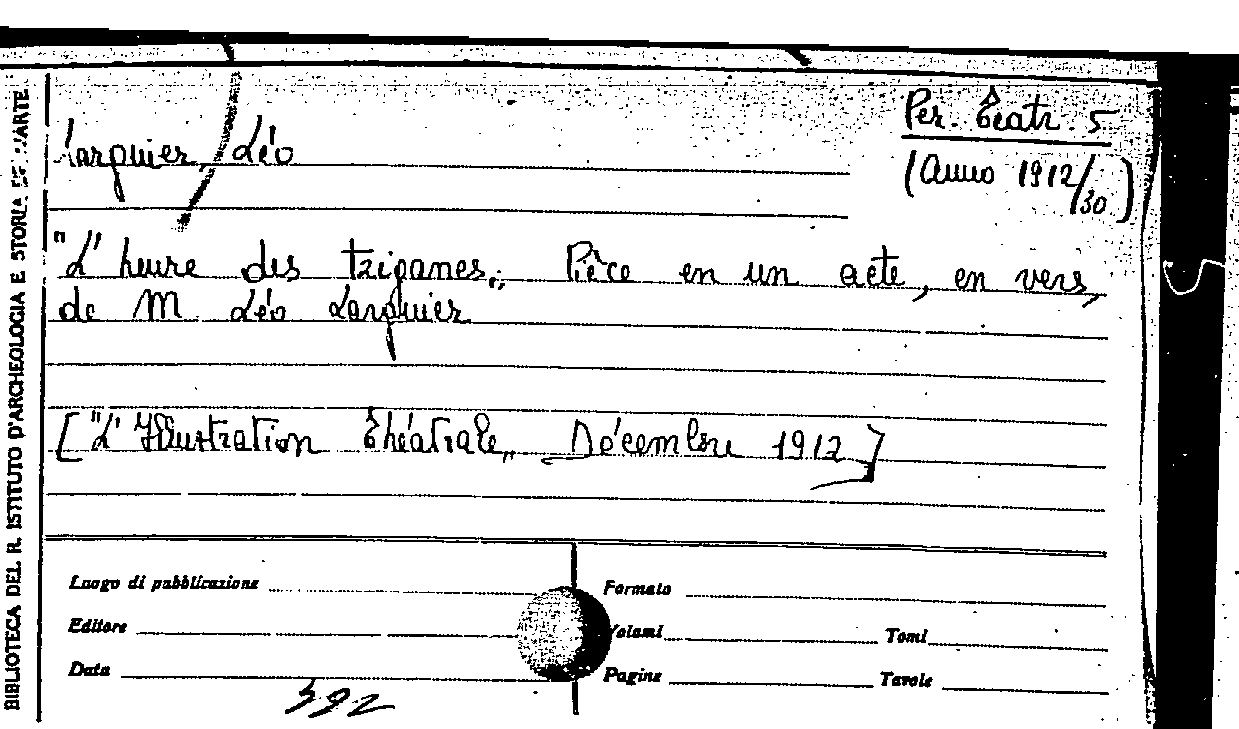 BIBLIOTECA DEL R. ISTITUTO D'ARCHEOLOGIA E STORIA DELL'ARTE
Per. Teatr. 5
(Anno 1912/30)
Larguier, Léo
"L'heure des tziganes,, Pièce en un acte, en vers,
de M Léo Larguier
["L'Illustration Théâtrale,, Décembre 1912]
Luogo di pubblicazione
Formato
Editore
Volumi
Tomi
Data
Pagine
Tavole
392